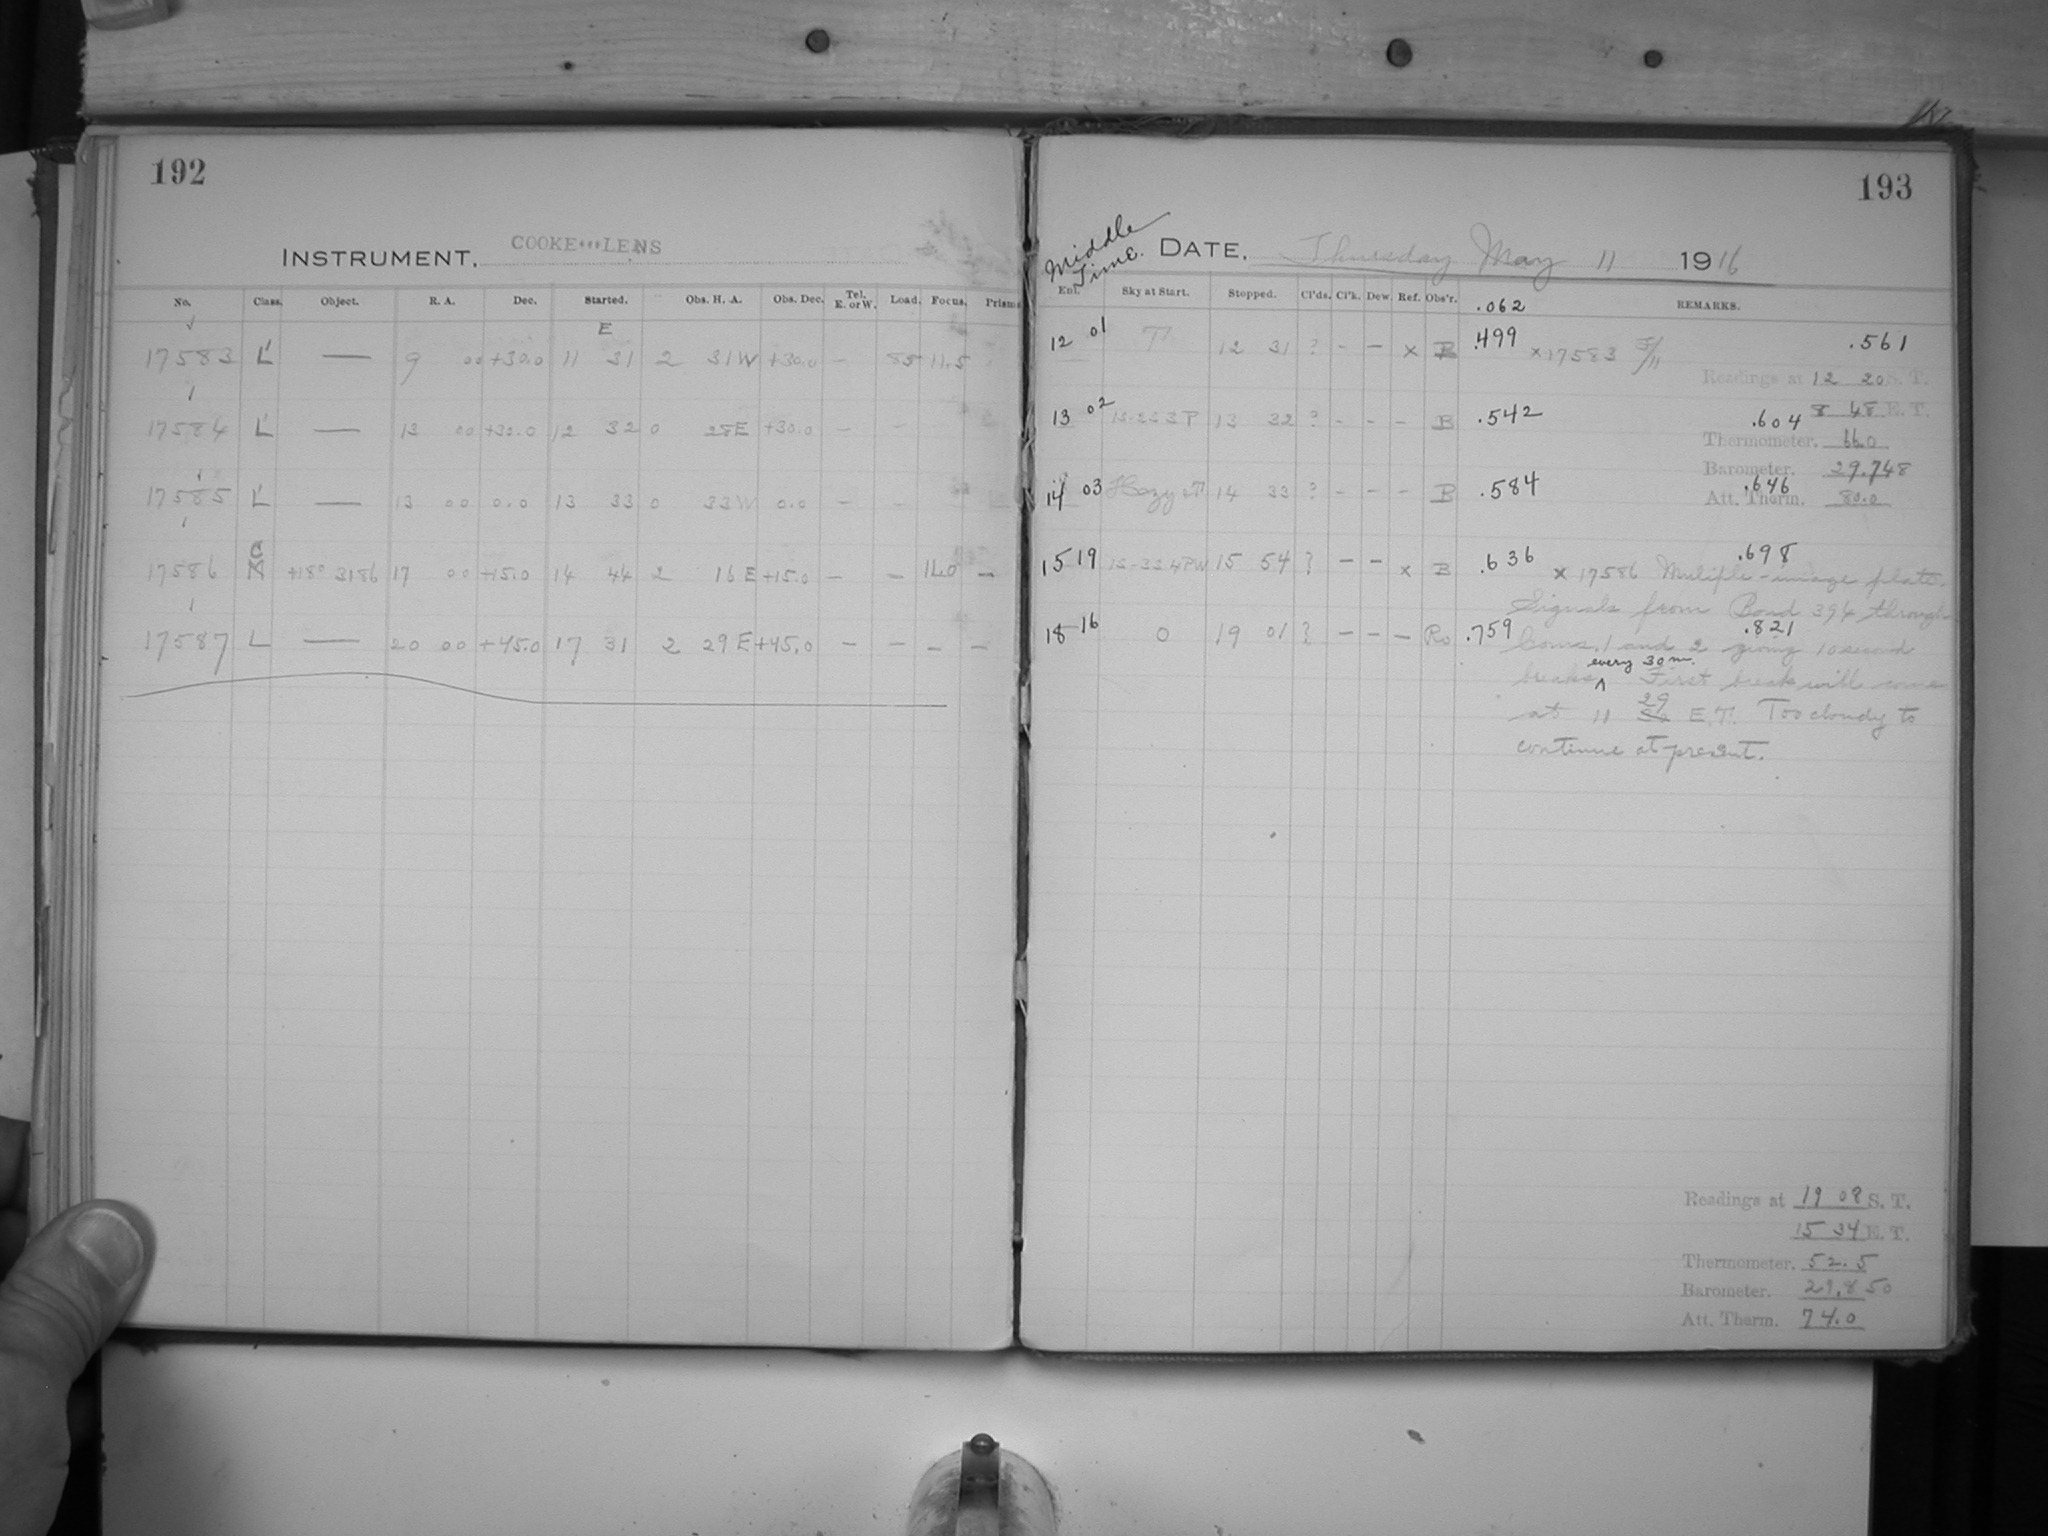 192
INSTRUMENT, COOKE LENS
No. Class. Object. R. A. Dec. Started. Obs. H. A. Obs. Dec. Tel. E. or W. Load. Focus. Prism
E
17583 L — 9 00 +30.0 11 31 2 31 W +30.0 — 85 11.5
17584 L — 13 00 +30.0 12 32 0 28 E +30.0 — -
17585 L — 13 00 0.0 13 33 0 33 W 0.0 — -
C
17586 +18° 3186 17 00 +15.0 14 44 2 16 E +15.0 — — 11.0 —
17587 L — 20 00 +45.0 17 31 2 29 E +45.0 — — — —
193
Middle Time.
DATE, Thursday May 11 1916
Ent. Sky at Start. Stopped. Cl'ds. Cl'k. Dew. Ref. Obs'r. REMARKS.
.062
12 01 T 12 31 ? - — x B .499 x 17583 5/11 .561
Readings at 12 20 S. T.
8 48 E. T.
13 02 13 32 ? - — — B .542 .604
Thermometer. 66.0
Barometer. 29.748
14 03 Hazy T 14 33 ? - — — B .584 .646
Att. Therm. 80.0
15 19 15 54 ? — — x B .636 .698
x 17586 Multiple-image plate.
Signals from Bond 394 through
18 16 0 19 01 ? — — — Ro .759 .821
Coms. 1 and 2 giving 10 second
breaks every 30m. First break will come
at 11 29 E.T. Too cloudy to
continue at present.
Readings at 19 08 S. T.
15 34 E. T.
Thermometer. 52.5
Barometer. 29.850
Att. Therm. 74.0